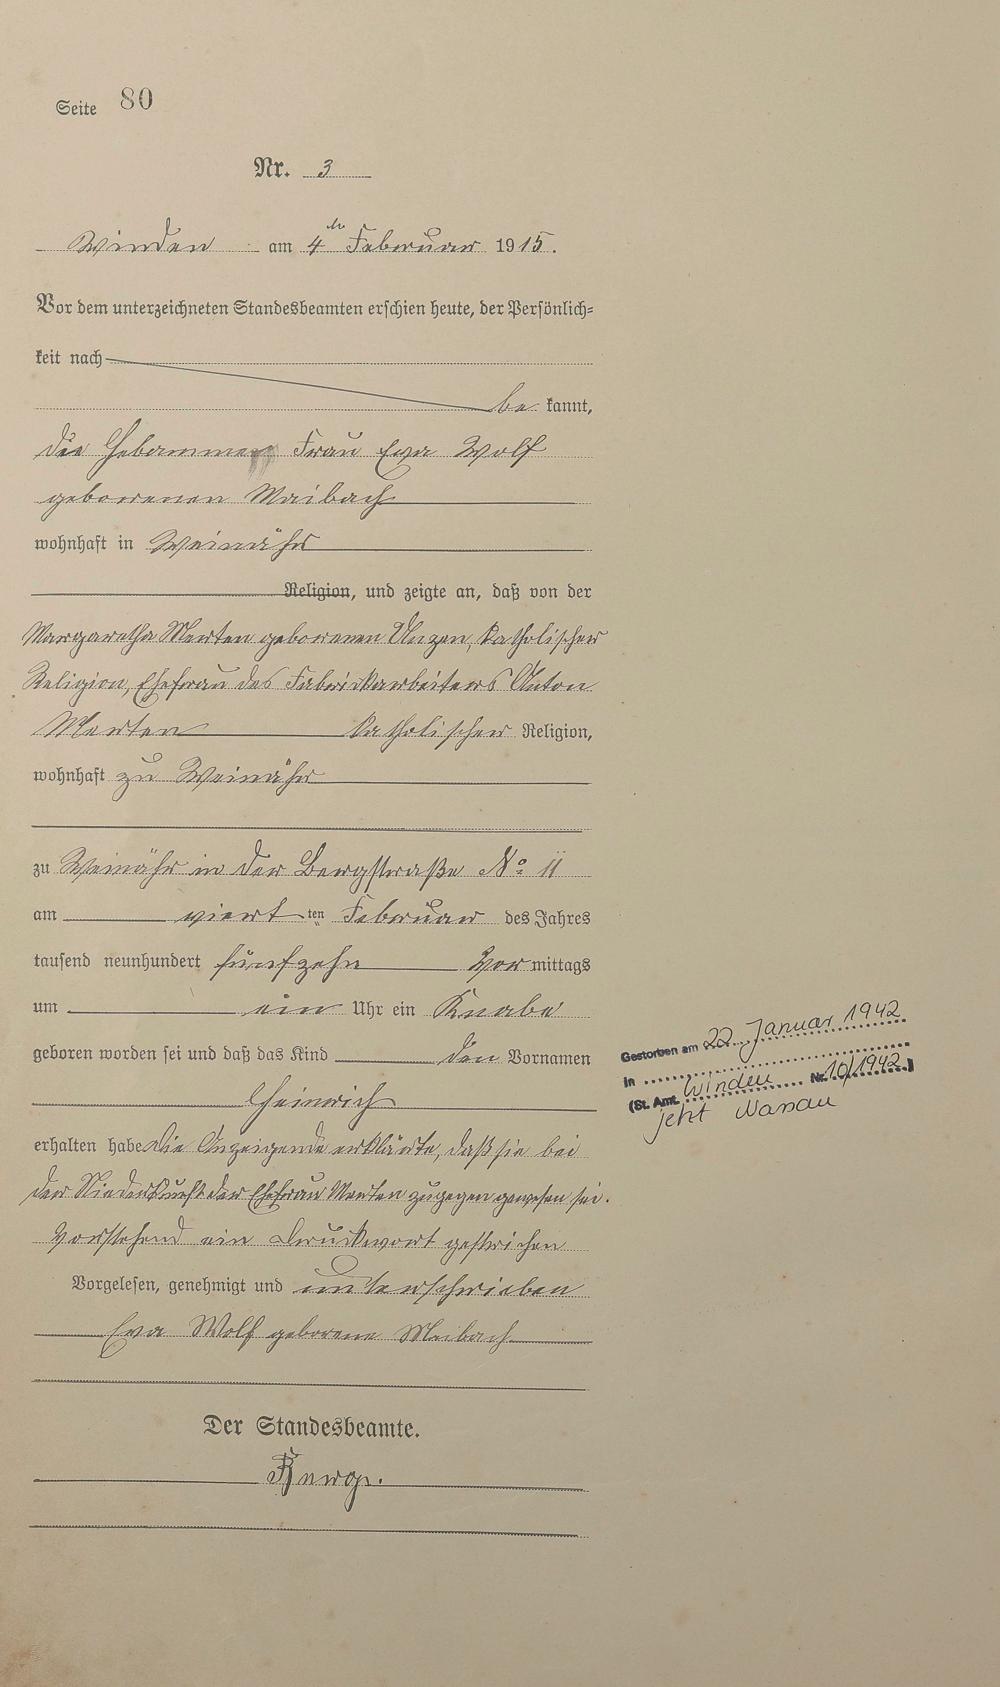 Seite 80
Nr. 3
Winden am 4ten Februar 1915.
Vor dem unterzeichneten Standesbeamten erschien heute, der Persönlich=
keit nach
be kannt,
die Hebamme Frau Eva Wolf
geborenen Maibach
wohnhaft in Weinähr
Religion, und zeigte an, daß von der
Margaretha Merten geborenen Unzen, katholischer
Religion, Ehefrau des Fabrikarbeiters Anton
Merten katholischer Religion,
wohnhaft zu Weinähr
zu Weinähr in der Bergstraße No 11
am viert ten Februar des Jahres
tausend neunhundert fünfzehn Vor mittags
um ein Uhr ein Knabe
geboren worden sei und daß das Kind den Vornamen
Heinrich
erhalten habe. Die Anzeigende erklärte, daß sie bei
der Niederkunft der Ehefrau Merten zugegen gewesen sei.
Vorstehend ein Druckwort gestrichen
Vorgelesen, genehmigt und unterschrieben
Eva Wolf geborene Meibach
Der Standesbeamte.
Gestorben am 22. Januar 1942
in
(St. Amt. Winden Nr. 10/1942.)
jetzt Nassau